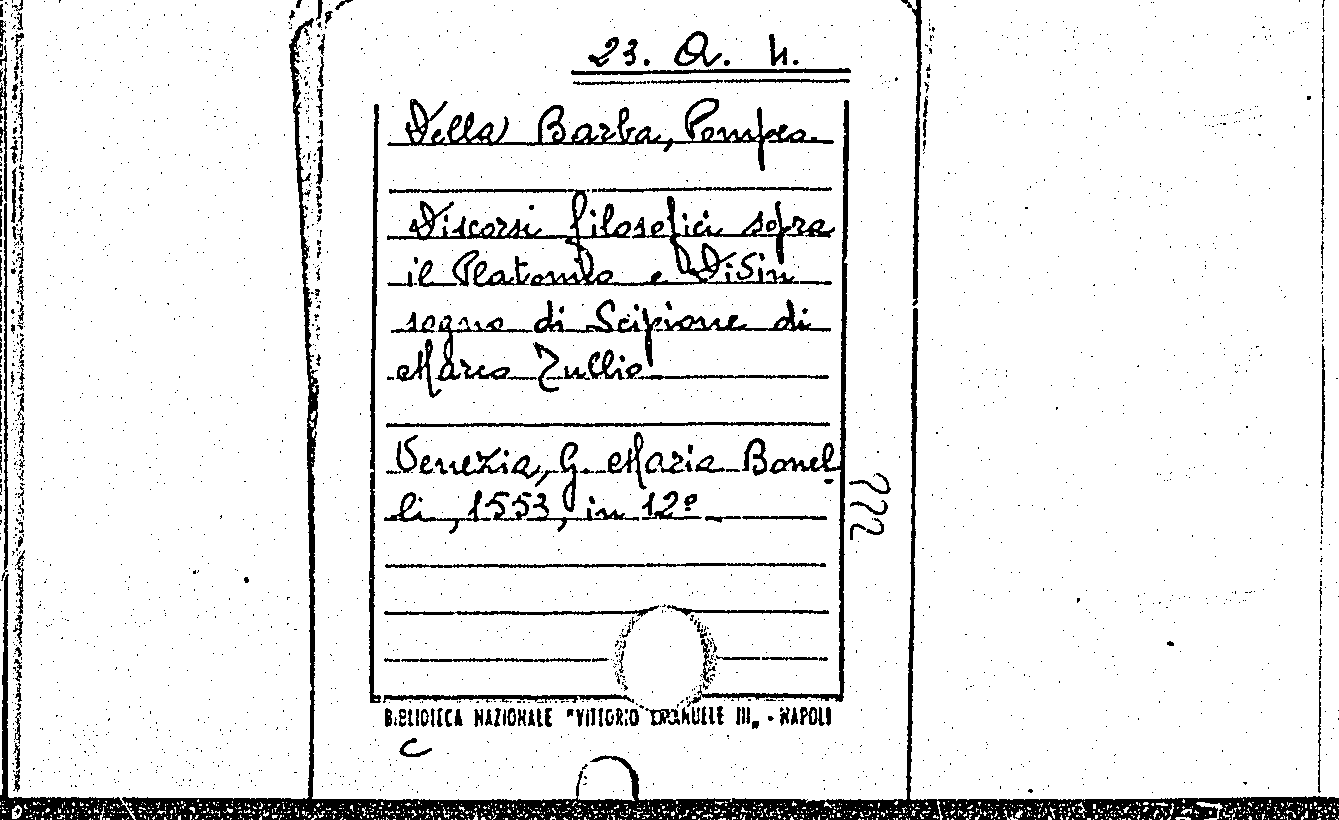 23. Q. H.
Della Barba, Pompeo
Discorsi filosofici sopra
il Platonico e Divin
sogno di Scipione di
Marco Tullio
Venezia, G. Maria Bonel-
li, 1553, in 12º
BIBLIOTECA NAZIONALE "VITTORIO EMANUELE III„ - NAPOLI
C